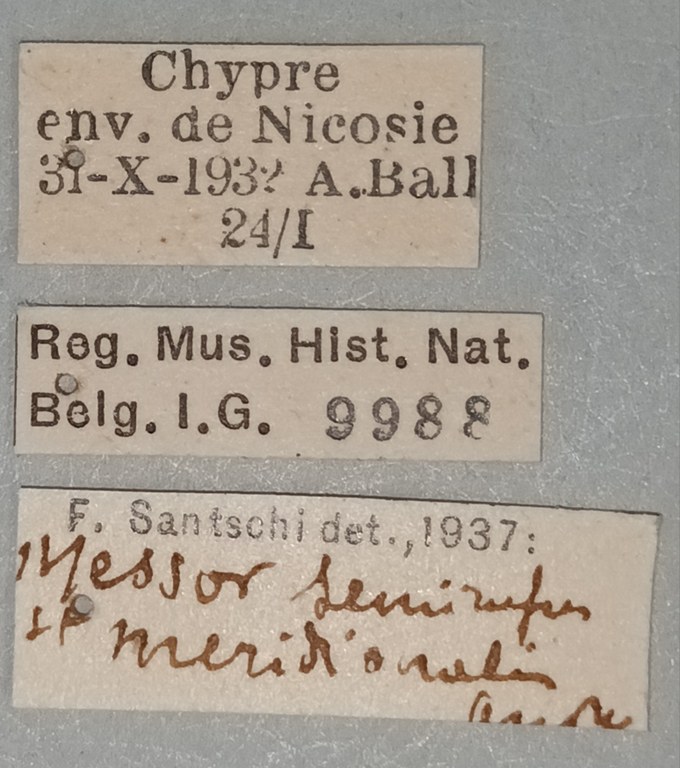 Chypre
env. de Nicosie
31-X-193? A.Ball
24/I
Reg. Mus. Hist. Nat.
Belg. I.G. 9988
F. Santschi det., 1937:
Messor semirufus
meridionalis